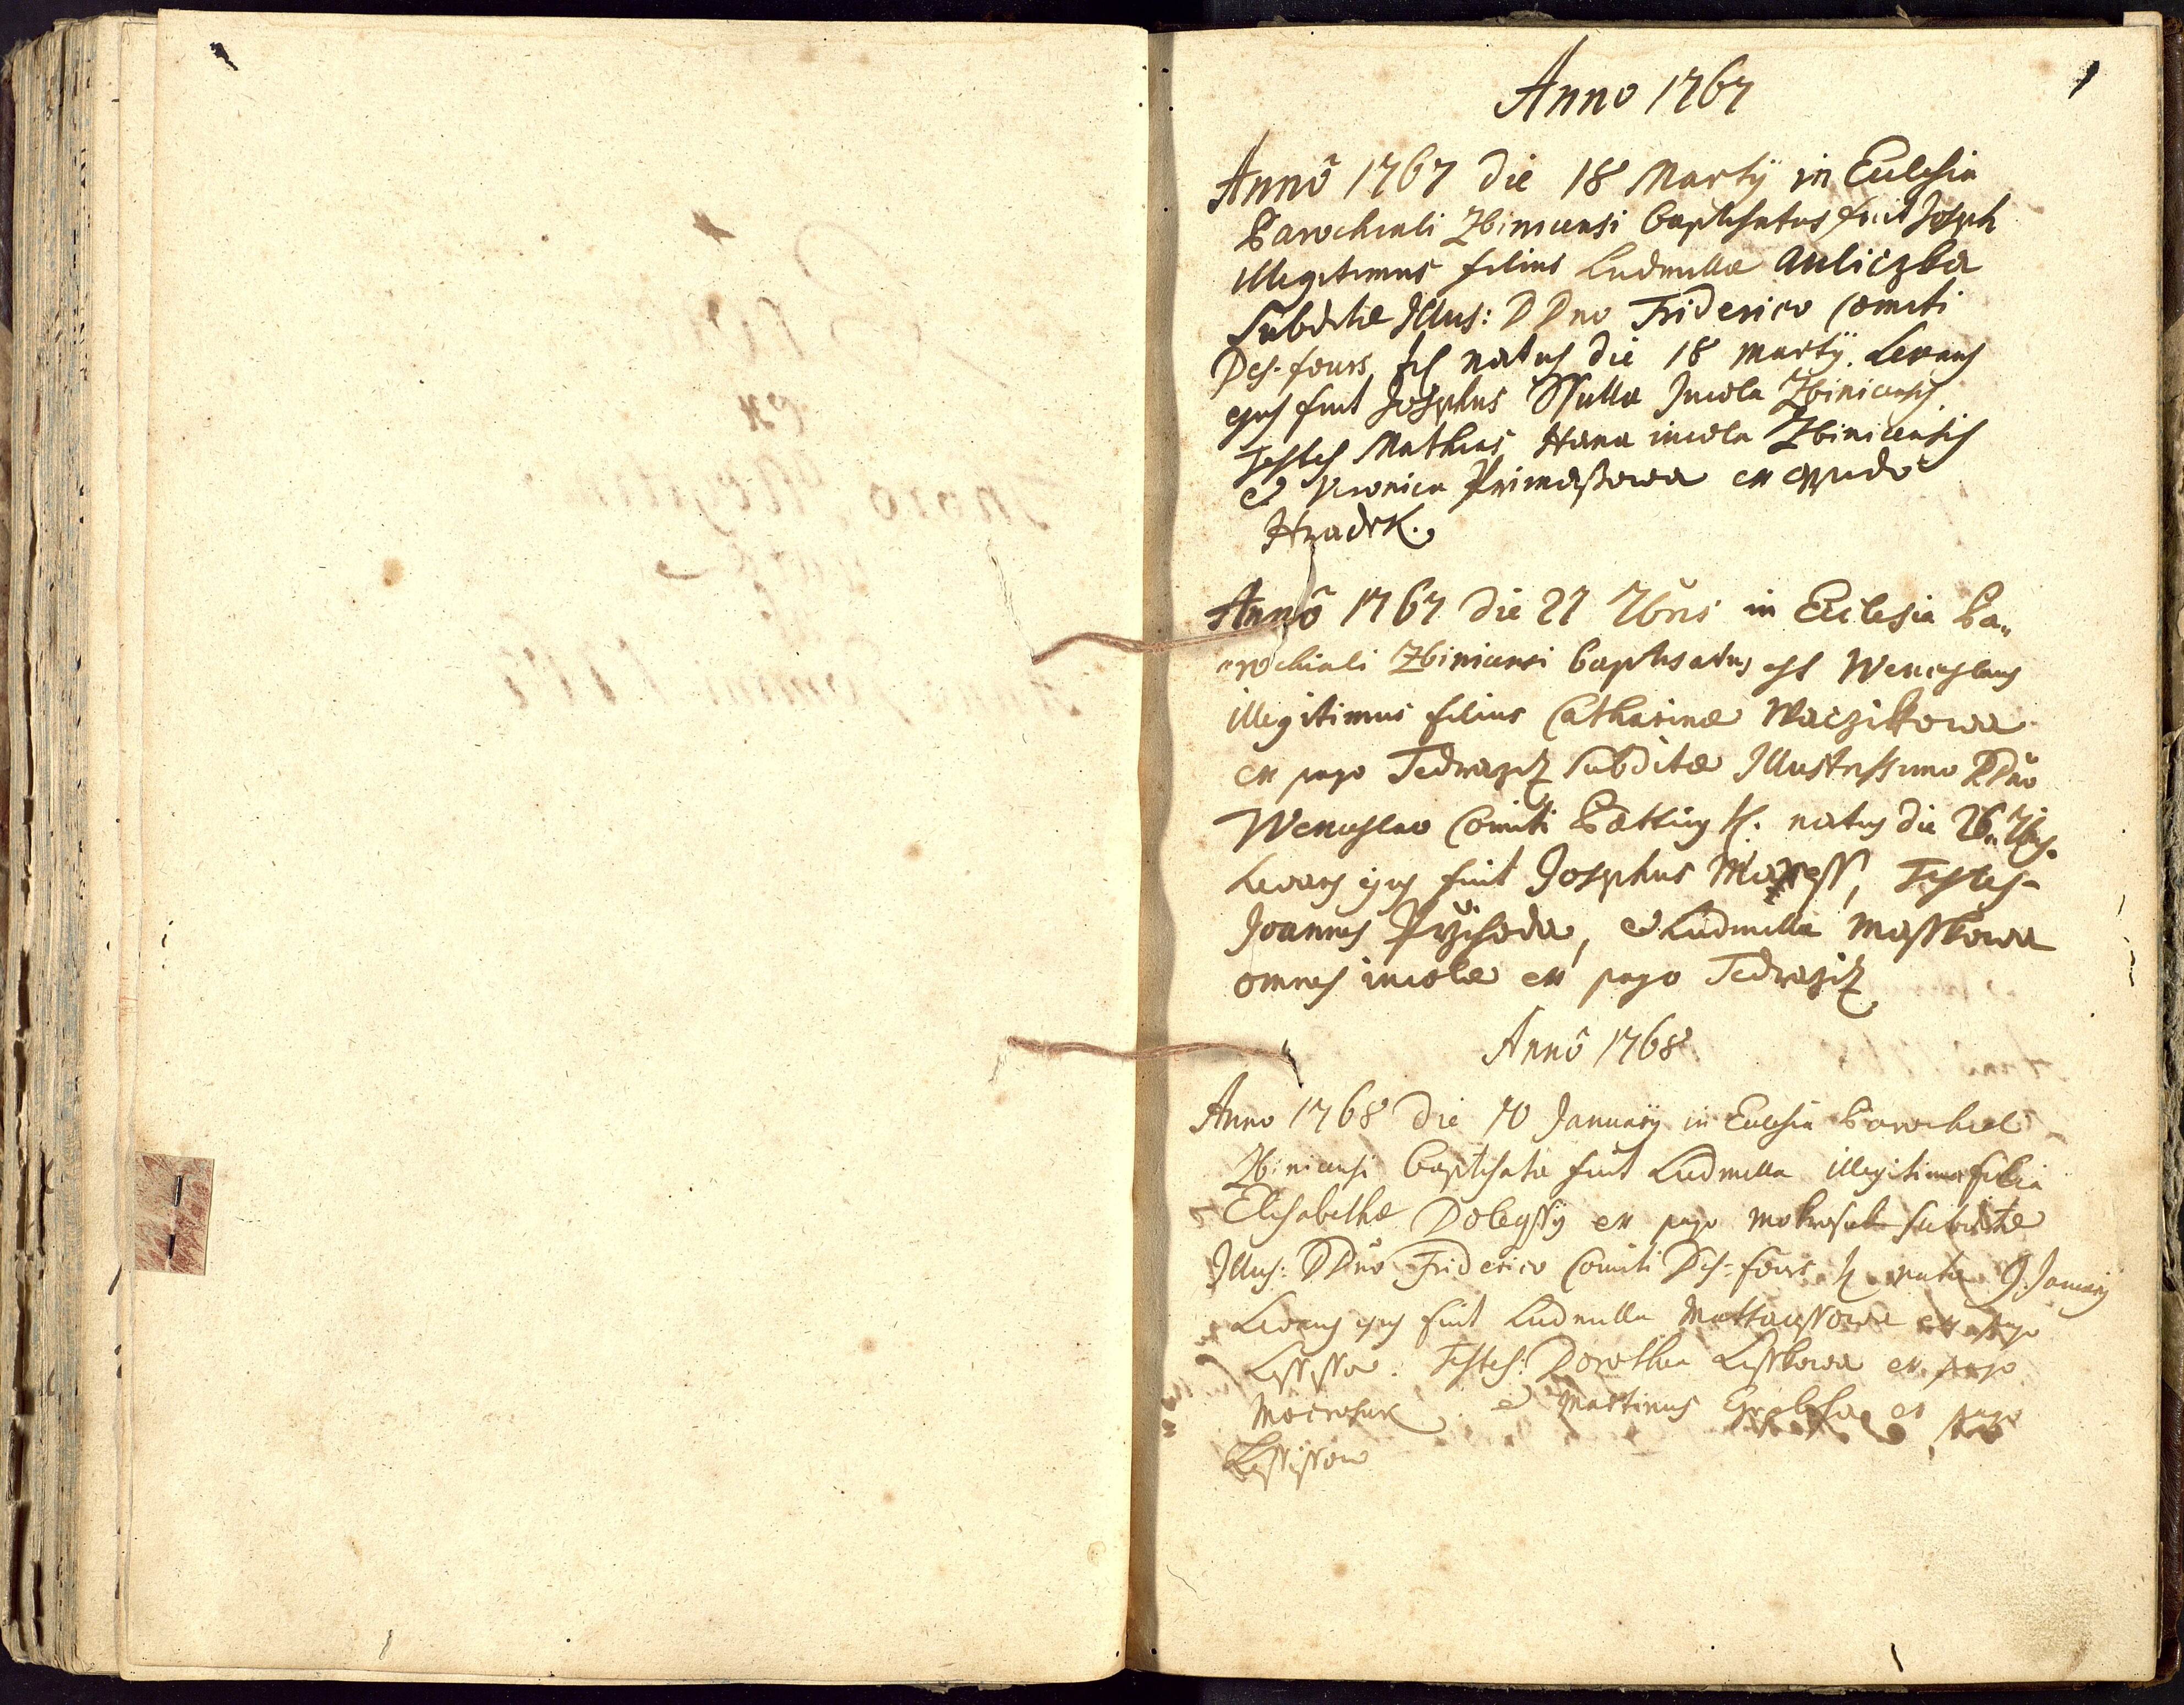 Anno 1767
Annô 1767 die 18 Martÿ in Ecclesia
Parochiali Zbinicensi baptisatus fuit Joseph
illegitimus filius Ludmillæ Auliczka
Subditæ Illus: DDno Friderico Comiti
Des-fours, natus die 18 Martÿ. Levans
ejus fuit Josephus Ssulla Incola Zbinicensis
Testes Mathias Hana incola Zbinicensis
et Veronica Primaßowa ex oppido
Hradek.
Annô 1767 die 27 7bris in Ecclesia Pa„
rochiali Zbinicensi baptisatus est Wenceslaus
illegitimus filius Catharinæ Waczikowa
ex pago Tedrazitz Subditæ Illustrissimo DDno
Wenceslao Comiti Pætting natus die 26„ 7bris.
Levans ejus fuit Josephus Maress, Testes
Joannes Przihoda, et Ludmilla Masskowa
omnes incolæ ex pago Tedrazitz
Annô 1768
Anno 1768 die 10 Januarÿ in Ecclesia Parochiali
Zbinicensi baptisata fuit Ludmilla illegitima filia
Elisabethæ Dolegssy ex pago Mokrosuk Subditæ
Illus: DDno Friderico Comiti Des-fours nata 9 Januarÿ
Levans ejus fuit Ludmilla Mattaussowa ex pago
Testes: Dorothea Lisskowa ex pago
Mocrosuk et Martinus ex pago